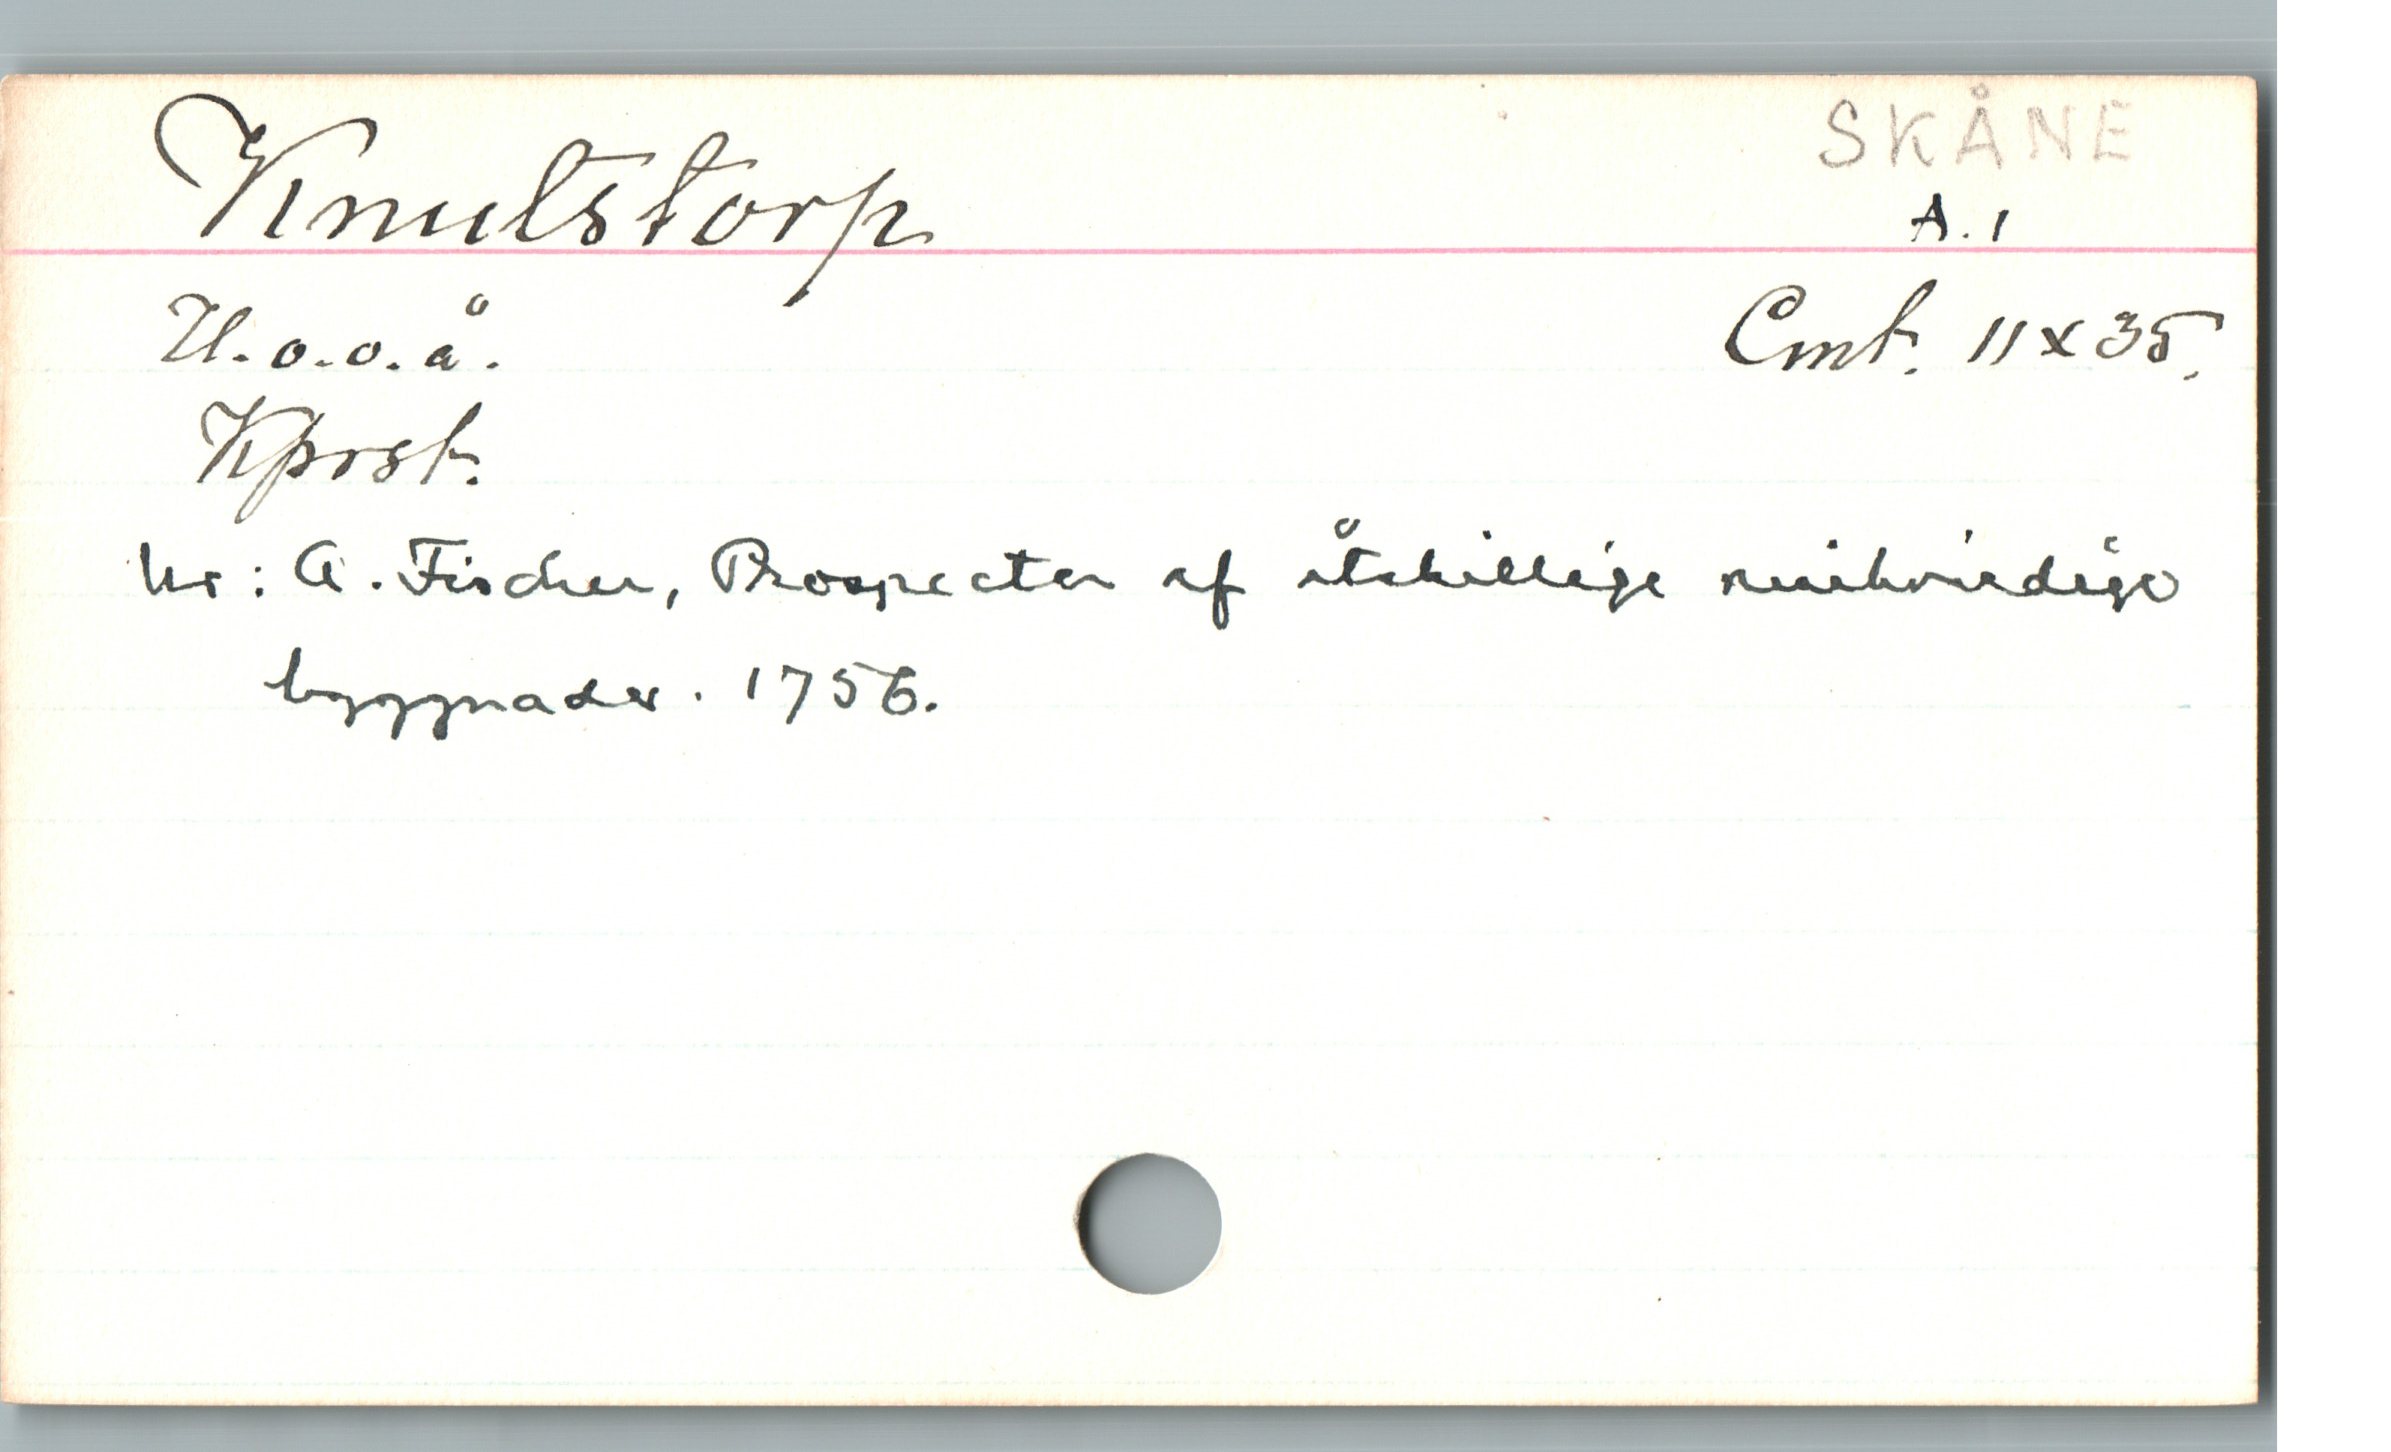 SKÅNE
Knutstorp
A. 1
U. o. o. å.
Cmt. 11 x 35.
Kprst.
Ur: A. Fischer, Prospecter af åtskillige märkvärdige
byggnader. 1756.